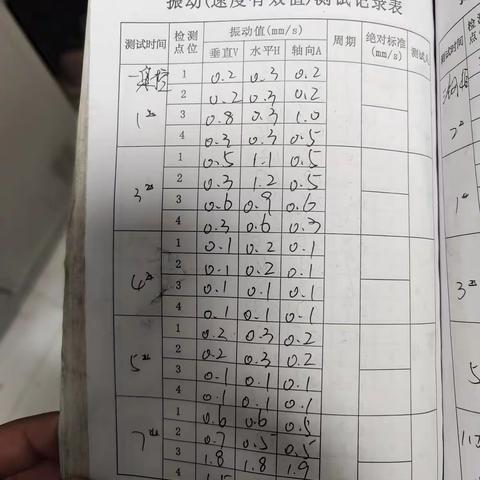 振动(速度有效值)测试记录表
测试时间 检测点位 振动值(mm/s) 周期 绝对标准(mm/s) 测试人
垂直V 水平H 轴向A
1 0.2 0.3 0.2
2 0.2 0.3 0.2
1# 3 0.8 0.3 1.0
4 0.3 0.3 0.5
1 0.5 1.1 0.5
2 0.3 1.2 0.5
3# 3 0.6 0.9 0.6
4 0.3 0.6 0.3
1 0.1 0.2 0.1
2 0.1 0.2 0.1
4# 3 0.1 0.1 0.1
4 0.1 0.1 0.1
1 0.2 0.3 0.2
2 0.2 0.3 0.2
5# 3 0.1 0.1 0.1
4 0.1 0.1 0.1
1 0.6 0.6 0.5
2 0.7 0.5 0.5
7# 3 1.8 1.8 1.9
4
测试时间
2#
1#
3#
5